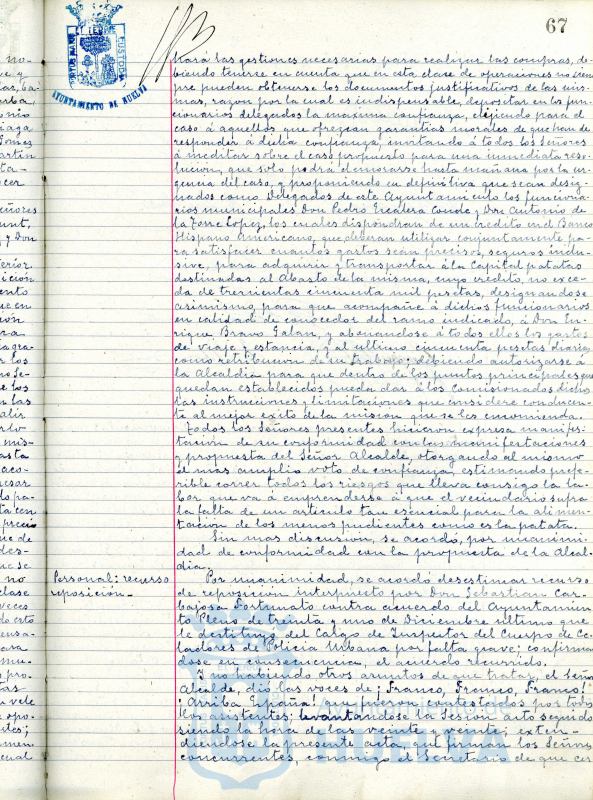 67
AYUNTAMIENTO DE HUELVA
hará las gestiones necesarias para realizar las compras, de-
biendo tenerse en cuenta que en esta clase de operaciones no siem
pre pueden obtenerse los documentos justificativos de las mis-
mas, razon por la cual es indispensable, depositar en los fun-
cionarios delegados la maxima confianza, eligiendo para el
caso á aquellos que ofrezcan garantias morales de que han de
responder á dicha confianza, invitando á todos los Señores
á meditar sobre el caso propuesto para una inmediata reso-
lucion, que solo podrá demorarse hasta mañana por la ur-
gencia del caso, y proponiendo en definitiva que sean desig-
nados como Delegados de este Ayuntamiento los funciona-
rios municipales Don Pedro Escalera Conde y Don Antonio de
la Torre Lopez, los cuales dispondran de un credito en el Banco
Hispano Americano, que deberan utilizar conjuntamente pa-
ra satisfacer cuantos gastos sean precisos, seguros inclu-
sive, para adquirir y transportar á la Capital patatas
destinadas al abasto de la misma, cuyo credito, no exce-
da de trescientas cincuenta mil pesetas, designandose
asimismo, para que acompañe á dichos funcionarios
en calidad de conocedor del ramo indicado, á Don En-
rique Bravo Galan, y abonandose á todos ellos los gastos
de viaje y estancia, y al ultimo cincuenta pesetas diarias
como retribucion de su trabajo; debiendo autorizarse á
la Alcaldia para que dentro de los puntos principales que
quedan establecidos pueda dar á los comisionados dichos
las instrucciones y limitaciones que considere conducen-
te al mejor exito de la mision que se les encomienda.
Todos los Señores presentes hicieron expresa manifes-
tacion de su conformidad con las manifestaciones
y propuesta del Señor Alcalde, otorgando al mismo
el mas amplio voto de confianza, estimando prefe-
rible correr todos los riesgos que lleva consigo la la-
bor que va á emprenderse á que el vecindario sufra
la falta de un articulo tan esencial para la alimen-
tacion de los menos pudientes como es la patata.
Sin mas discusion, se acordó, por unanimi-
dad de conformidad con la propuesta de la Alcal-
dia.
Personal: recurso
reposición.-
Por unanimidad, se acordó desestimar recurso
de reposicion interpuesto por Don Sebastian Car-
bajosa Fortunato contra acuerdo del Ayuntamien
to Pleno de treinta y uno de Diciembre ultimo que
le destituyó del Cargo de Inspector del Cuerpo de Ce-
ladores de Policia Urbana por falta grave; confirman
dose en consecuencia, el acuerdo recurrido.
Y no habiendo otros asuntos de que tratar, el Señor
Alcalde, dió las voces de ¡Franco, Franco, Franco!
¡Arriba España! que fueron contestadas por todos
los asistentes; levantandose la Sesion acto seguido
siendo la hora de las veinte y veinte; exten-
diendose la presente acta, que firman los Señores
concurrentes, conmigo el Secretario de que cer